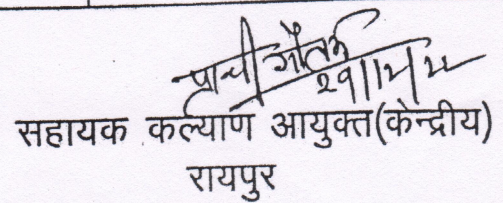 प्राची गौतम
सहायक कल्याण आयुक्त(केन्द्रीय)
रायपुर